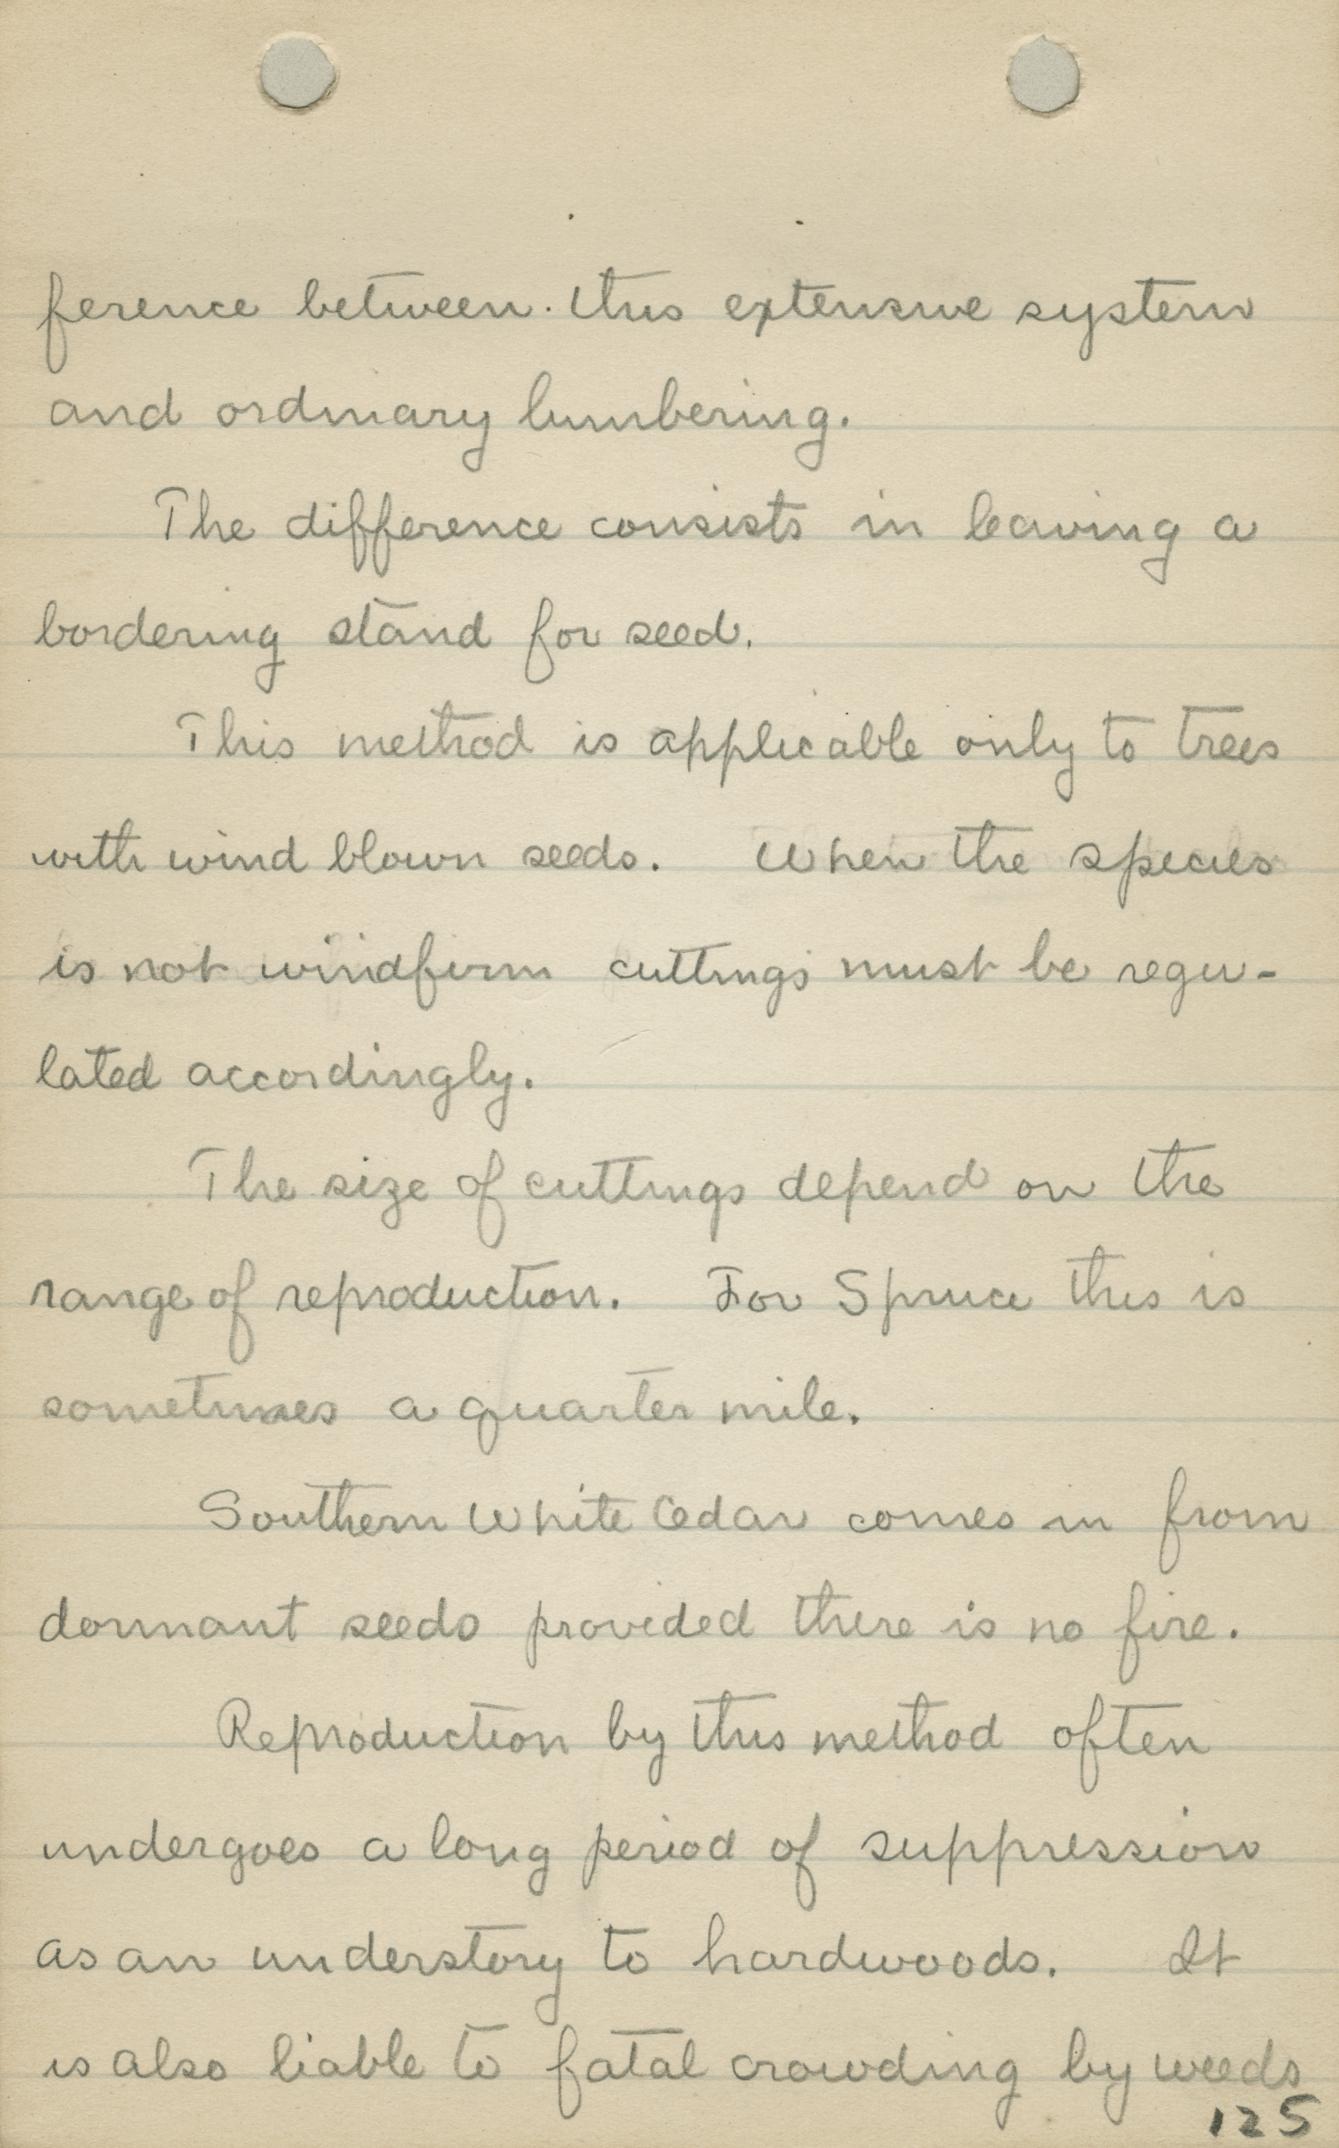 ference between this extensive system
and ordinary lumbering.
The difference consists in leaving a
bordering stand for seed.
This method is applicable only to trees
with wind blown seeds. When the species
is not windfirm cuttings must be regu-
lated accordingly.
The size of cuttings depend on the
range of reproduction. For Spruce this is
sometimes a quarter mile.
Southern White Cedar comes in from
dormant seeds provided there is no fire.
Reproduction by this method often
undergoes a long period of suppression
as an understory to hardwoods. It
is also liable to fatal crowding by weeds
125